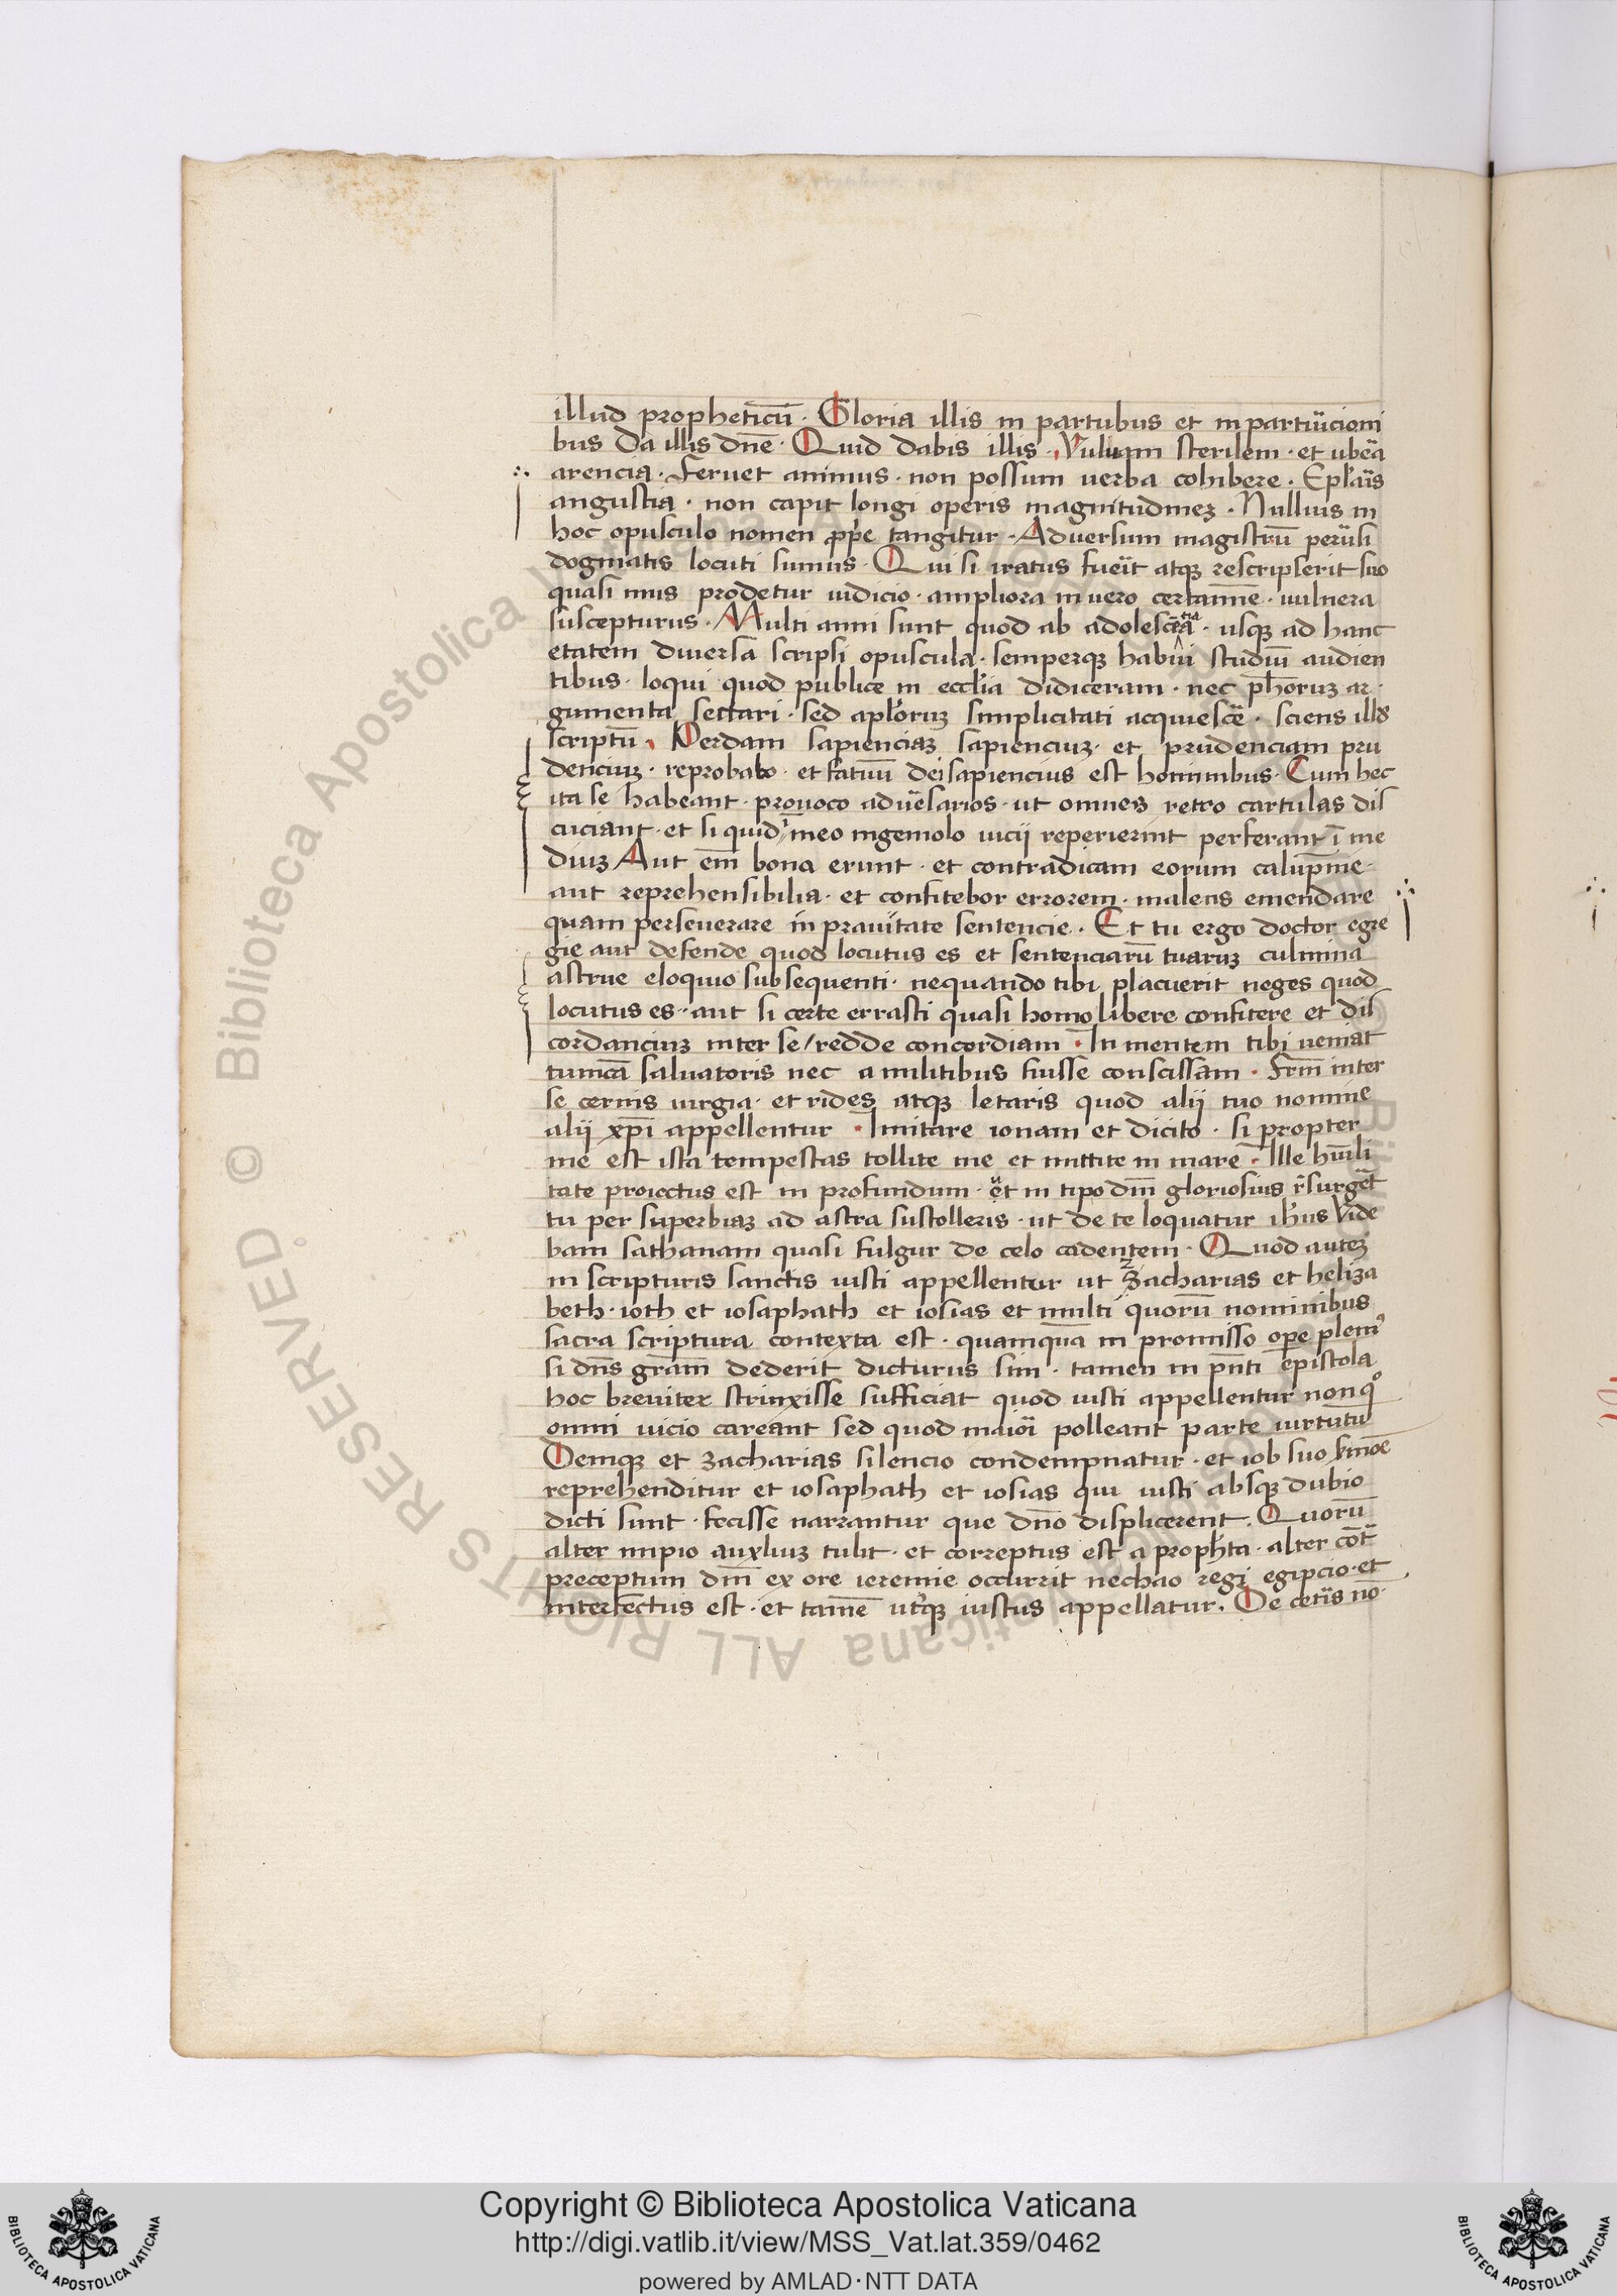 illud propheticū · Gloria illis in partubus et in partu᷑icioni
bus Da illis dn̄e · Quid dabis illis · Vuluam sterilem · et vbe᷑a
arencia · Feruet animus · non possum uerba cohibere · Epl̄aïs
angustia · non capit longi operis magnitudinez · Nullius in
hoc opusculo nomen ꝓp̱e tangitur · Aduersum magistrū peru᷑si
dogmatis locuti sumus · Qui si iratus fue᷑it atqꝫ rescripserit suo
quasi mus prodetur iudicio · ampliora in uero certamine · uulnera
suscepturus · Multi anni sunt quod ab adolescēcia · usqꝫ ad hanc
etatem diuersa scripsi opuscula · semperqꝫ habui studiū audien
tibus · loqui quod publice in eccl̄ia didiceram · nec ph̄orum ar ·
gumenta sectari · sed apl̄orum simplicitati acquiesce᷑ · sciens illd̄
scriptū · Perdam sapienciaꝫ sapienciuꝫ · et prudenciam pru
denciuꝫ · reprobabo · et fatuū dei sapiencius est hominibus · Cum hec
ita se habeant · prouoco adue᷑sarios · ut omnes retro cartulas dis
cuciant · et si quid ī meo ingeniolo uicii reperierint perferant ī me
diuꝫ Aut em̄ bona erunt · et contradicam eorum calūpnie ·
aut reprehensibilia · et confitebor errorem · malens emendare
quam perseuerare in prauitate sentencie · Et tu ergo doctor egre
gie aut defende quod locutus es et sentenciarū tuarum culmina
astrue eloquio subsequenti · nequando tibi placuerit neges quod
locutus es · aut si certe errasti quasi homo libere confitere et dis
cordanciuꝫ inter se / redde concordiam · In mentem tibi ueniat
tunicā saluatoris nec a militibus fuisse conscissam · Frm̄ inter
se cernis iurgia · et rides atqꝫ letaris quod alij tuo nomine
alij xp̄i appellentur · Imitare ionam et dicito · si propter
me est ista tempestas tollite me et mittite in mare · Ille hu̅ili
tate proiectus est in profundum · et in tipo dn̄i gloriosius rēsurge᷑t
tu per superbiaꝫ ad astra sustolleris · ut de te loquatur ih̄us Vide
bam sathanam quasi fulgur de celo cadentem · Quod auteꝫ
in scripturis sanctis iusti appellentur ut zacharias et heliza
beth · ioth et iosaphath et iosias et multi quorū nominibus
sacra scriptura contexta est · quamquā in promisso ope plenꝰ
si dn̄s grām dederit dicturus sim · tamen in pn̄ti epistola
hoc breuiter strinxisse sufficiat quod iusti appellentur non qͦ
omni uicio careant sed quod maiori polleant parte uirtutū
Deniqꝫ et zacharias silencio condempnatur · et iob suo s̄mone
reprehenditur et iosaphath et iosias qui iusti absqꝫ dubio
dicti sunt · fecisse narrantur que dn̄o displicerent · Quorū
alter impio auxliuꝫ tulit · et correptus est a proph̄ta · alter cōtᷓ
preceptum dn̄i ex ore ieremie occurrit nechao regi egipcio · et
interfectus est · et tamē ut̓qꝫ iustus appellatur · De cete᷑is nō ·
Copyright © Biblioteca Apostolica Vaticana
http://digi.vatlib.it/view/MSS_Vat.lat.359/0462
powered by AMLAD·NTT DATA
BIBLIOTECA APOSTOLICA VATICANA
BIBLIOTECA APOSTOLICA VATICANA
Biblioteca Apostolica Vaticana ALL RIGHTS RESERVED ©